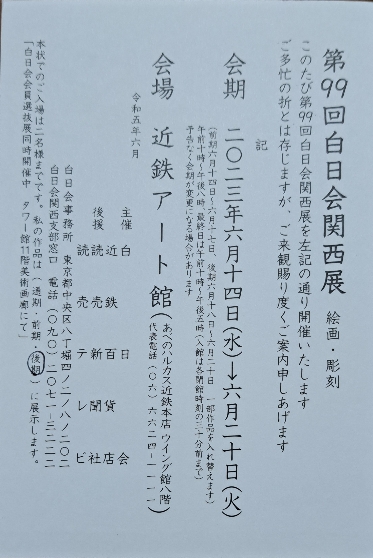 第99回白日会関西展 絵画・彫刻
このたび第99回白日会関西展を左記の通り開催いたします
ご多忙の折とは存じますが、ご来観賜り度くご案内申しあげます
記
会期 二〇二三年六月十四日(水)→六月二十日(火)
(前期六月十四日~六月十七日、後期六月十八日~六月二十日 一部作品を入れ替えます)
午前十時~午後八時 最終日は午前十時~午後五時(入館は各閉館時刻の三十分前まで)
予告なく会期が変更になる場合があります
会場 近鉄アート館(あべのハルカス近鉄本店ウイング館八階)
代表電話(〇六)六六二四-一一一一
令和五年六月
主催 白日会
近鉄百貨店
後援 読売新聞社
読売テレビ
白日会事務所 東京都中央区八丁堀四ノ二ノ八ノ二〇二
白日会関西支部窓口 電話(〇九〇)二〇七一-三二二二
本状でのご入場は二名様までです。私の作品は(通期・前期・後期)に展示します。
「白日会会員選抜展同時開催中 タワー館11階美術画廊にて」